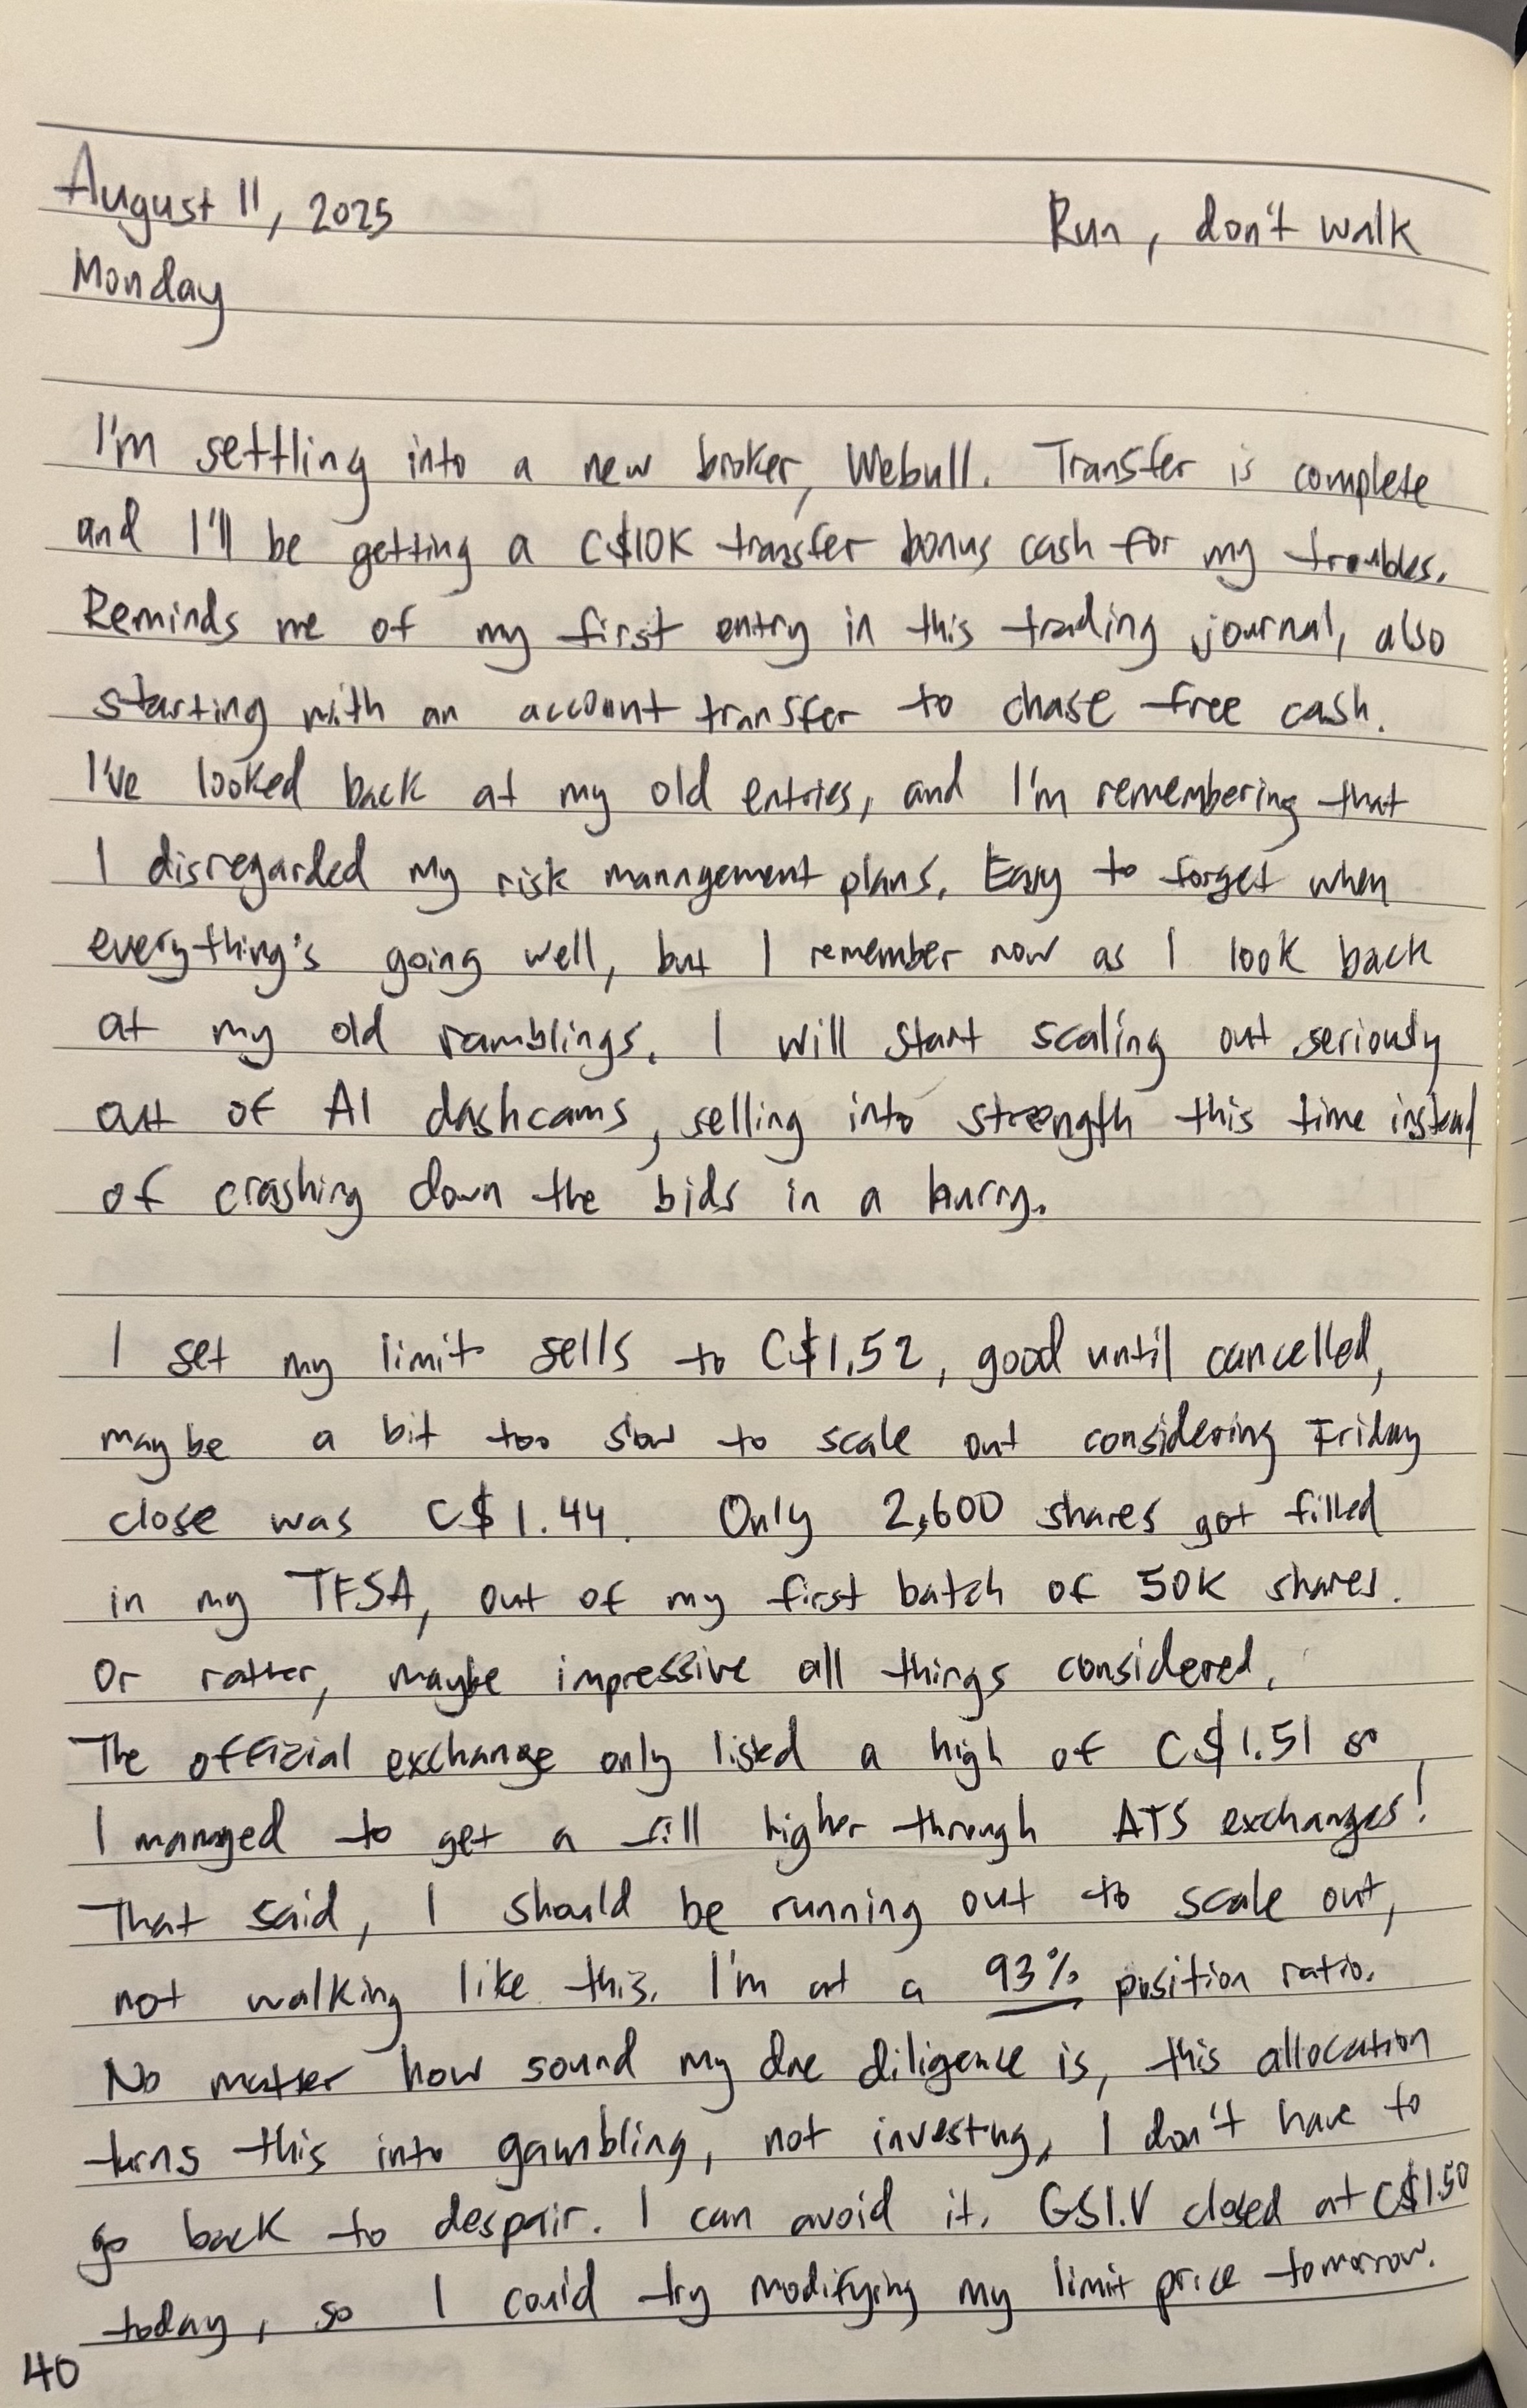 August 11, 2025
Run, don't walk
Monday
I'm settling into a new broker, Webull. Transfer is complete
and I'll be getting a C$10K transfer bonus cash for my troubles.
Reminds me of my first entry in this trading journal, also
starting with an account transfer to chase free cash.
I've looked back at my old entries, and I'm remembering that
I disregarded my risk management plans. Easy to forget when
everything's going well, but I remember now as I look back
at my old ramblings. I will start scaling out seriously
out of AI dashcams, selling into strength this time instead
of crashing down the bids in a hurry.
I set my limit sells to C$1.52, good until cancelled,
maybe a bit too slow to scale out considering Friday
close was C$1.44. Only 2,600 shares got filled
in my TFSA, out of my first batch of 50K shares.
Or rather, maybe impressive all things considered.
The official exchange only listed a high of C$1.51 so
I managed to get a fill higher through ATS exchanges!
That said, I should be running out to scale out,
not walking like this. I'm at a 93% position ratio.
No matter how sound my due diligence is, this allocation
turns this into gambling, not investing. I don't have to
go back to despair. I can avoid it. GSI.V closed at C$1.50
today, so I could try modifying my limit price tomorrow.
40